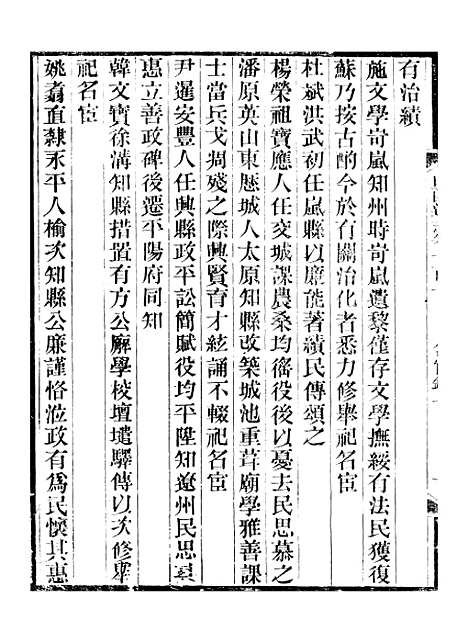 有治績
施文學岢嵐知州時岢嵐遺黎僅存文學撫綏有法民獲復
蘇乃按古酌今於有關治化者悉力修舉祀名宦
杜斌洪武初任嵐縣以廉能著績民傳頌之
楊榮祖寶應人任交城課農桑均徭役後以憂去民思慕之
潘原英山東歷城人太原知縣改築城池重葺廟學雅善課
士當兵戈凋殘之際興賢育才絃誦不輟祀名宦
尹暹安豐人任興縣政平訟簡賦役均平陞知遼州民思其
惠立善政碑後遷平陽府同知
韓文寶徐溝知縣措置有方公廨學校壇壝驛傳以次修舉
祀名宦
姚翥直隸永平人榆次知縣公廉謹恪蒞政有為民懷其惠